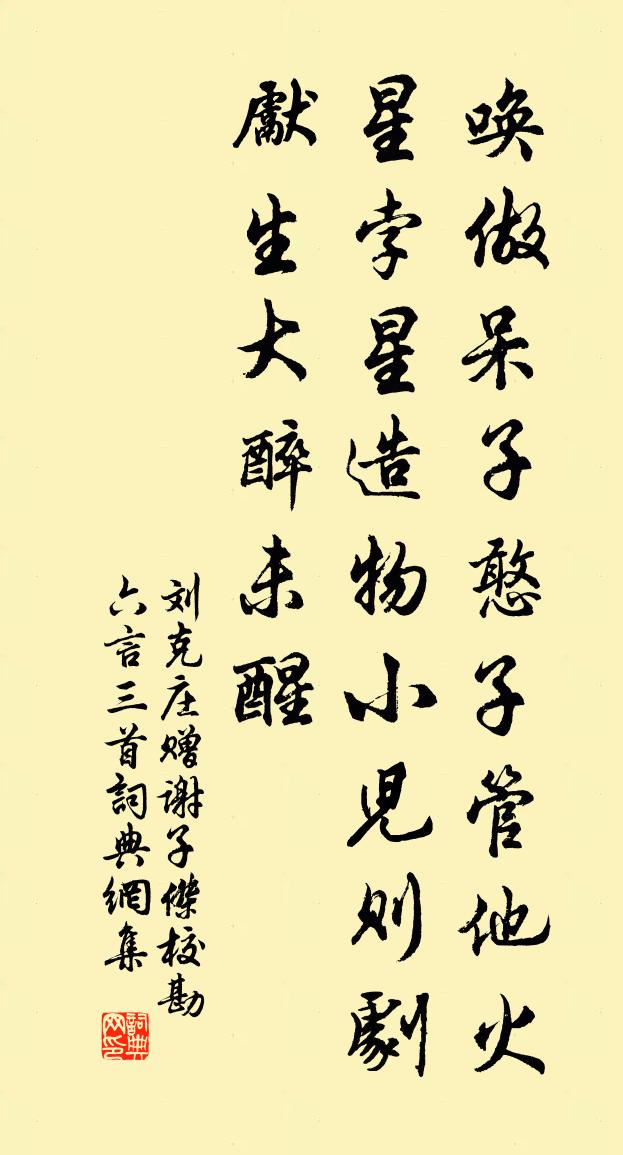 唤做呆子憨子管他火
星孛星造物小兒则劇
獻生大醉未醒
刘克庄赠谢子傑校勘
六言三首詞典網集
詞典網印